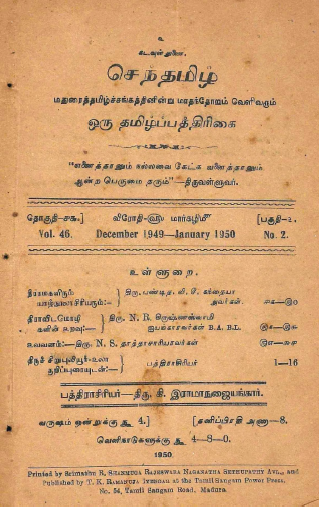 உ
கடவுள் துணை.
செந்தமிழ்
மதுரைத்தமிழ்ச்சங்கத்தினின்று மாதந்தோறும் வெளிவரும்
ஒரு தமிழ்ப்பத்திரிகை
"எனைத்தானும் நல்லவை கேட்க வனைத்தானும்
ஆன்ற பெருமை தரும்"—திருவள்ளுவர்.
தொகுதி-சக.] விரோதி-ளு மார்கழிமீ [பகுதி-உ.
Vol. 46. December 1949—January 1950 No. 2.
உள்ளுறை.
திரு. பண்டித.
அவர்கள்.
திராவிடமொழி திரு. N. R. கிருஷ்ணஸ்வாமி
களின் உறவு:— ஐயங்காரவர்கள் B.A. B.L.
உவலனம்:—திரு. N. S. தாத்தாசாரியரவர்கள்
திருச் சிறுபுலியூர்-உலா
பத்திராசிரியர் 1—16
குறிப்புரையுடன்:—
பத்திராசிரியர்—திரு. கி. இராமாநுஜையங்கார்.
வருஷம் ஒன்றுக்கு ரூ 4.] [தனிப்பிரதி அணா—8.
வெளிநாடுகளுக்கு ரூ 4—8—0.
1950
Printed by Srimathu R. Shanmuga Rajeswara Naganatha Sethupathy Avl., and
Published by T. K. Ramanuja Iyengar at the Tamil Sangam Power Press,
No. 54, Tamil Sangam Road, Madura.